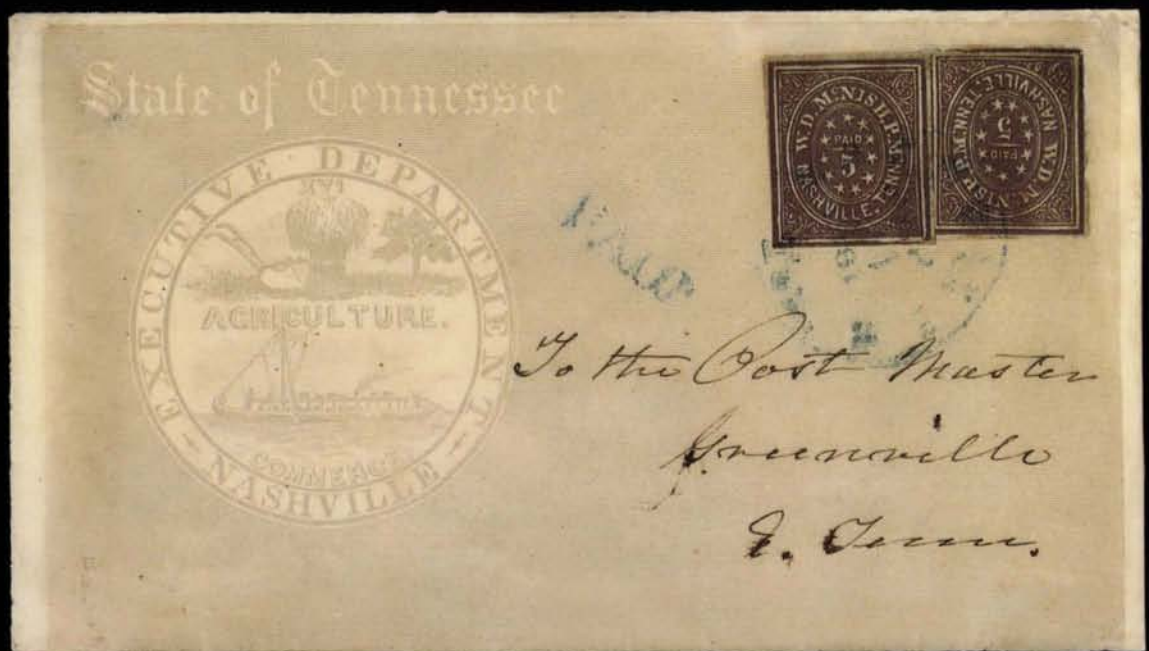 State of Tennessee
EXECUTIVE DEPARTMENT
XVI
AGRICULTURE.
COMMERCE
NASHVILLE
W.D. McNISH. P.M.
PAID
5
NASHVILLE. TENN.
W.D. McNISH. P.M.
PAID
5
NASHVILLE. TENN.
PAID
To the Post Master
Greenville
E. Tenn.